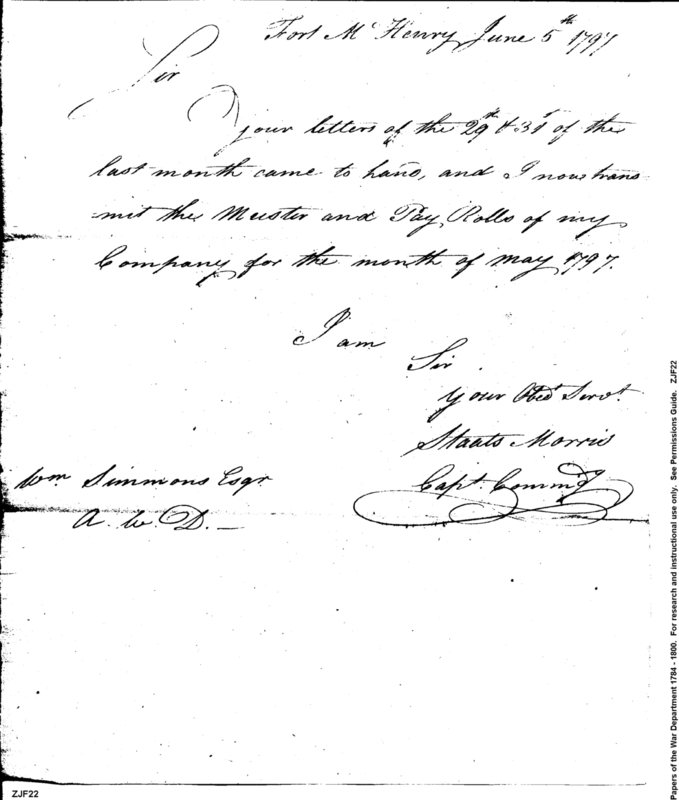 Fort McHenry June 5th 1797
Sir
your letters of the 29th & 31st of the
last month came to hand, and I now trans
-mit the Muster and Pay Rolls of my
Company for the month of May 1797.
I am
Sir
your Obedt Servt.
Staats Morris
Capt. Commdg
Wm Simmons Esqr
A. W. D. —
Papers of the War Department 1784 - 1800. For research and instructional use only. See Permissions Guide. ZJF22
ZJF22